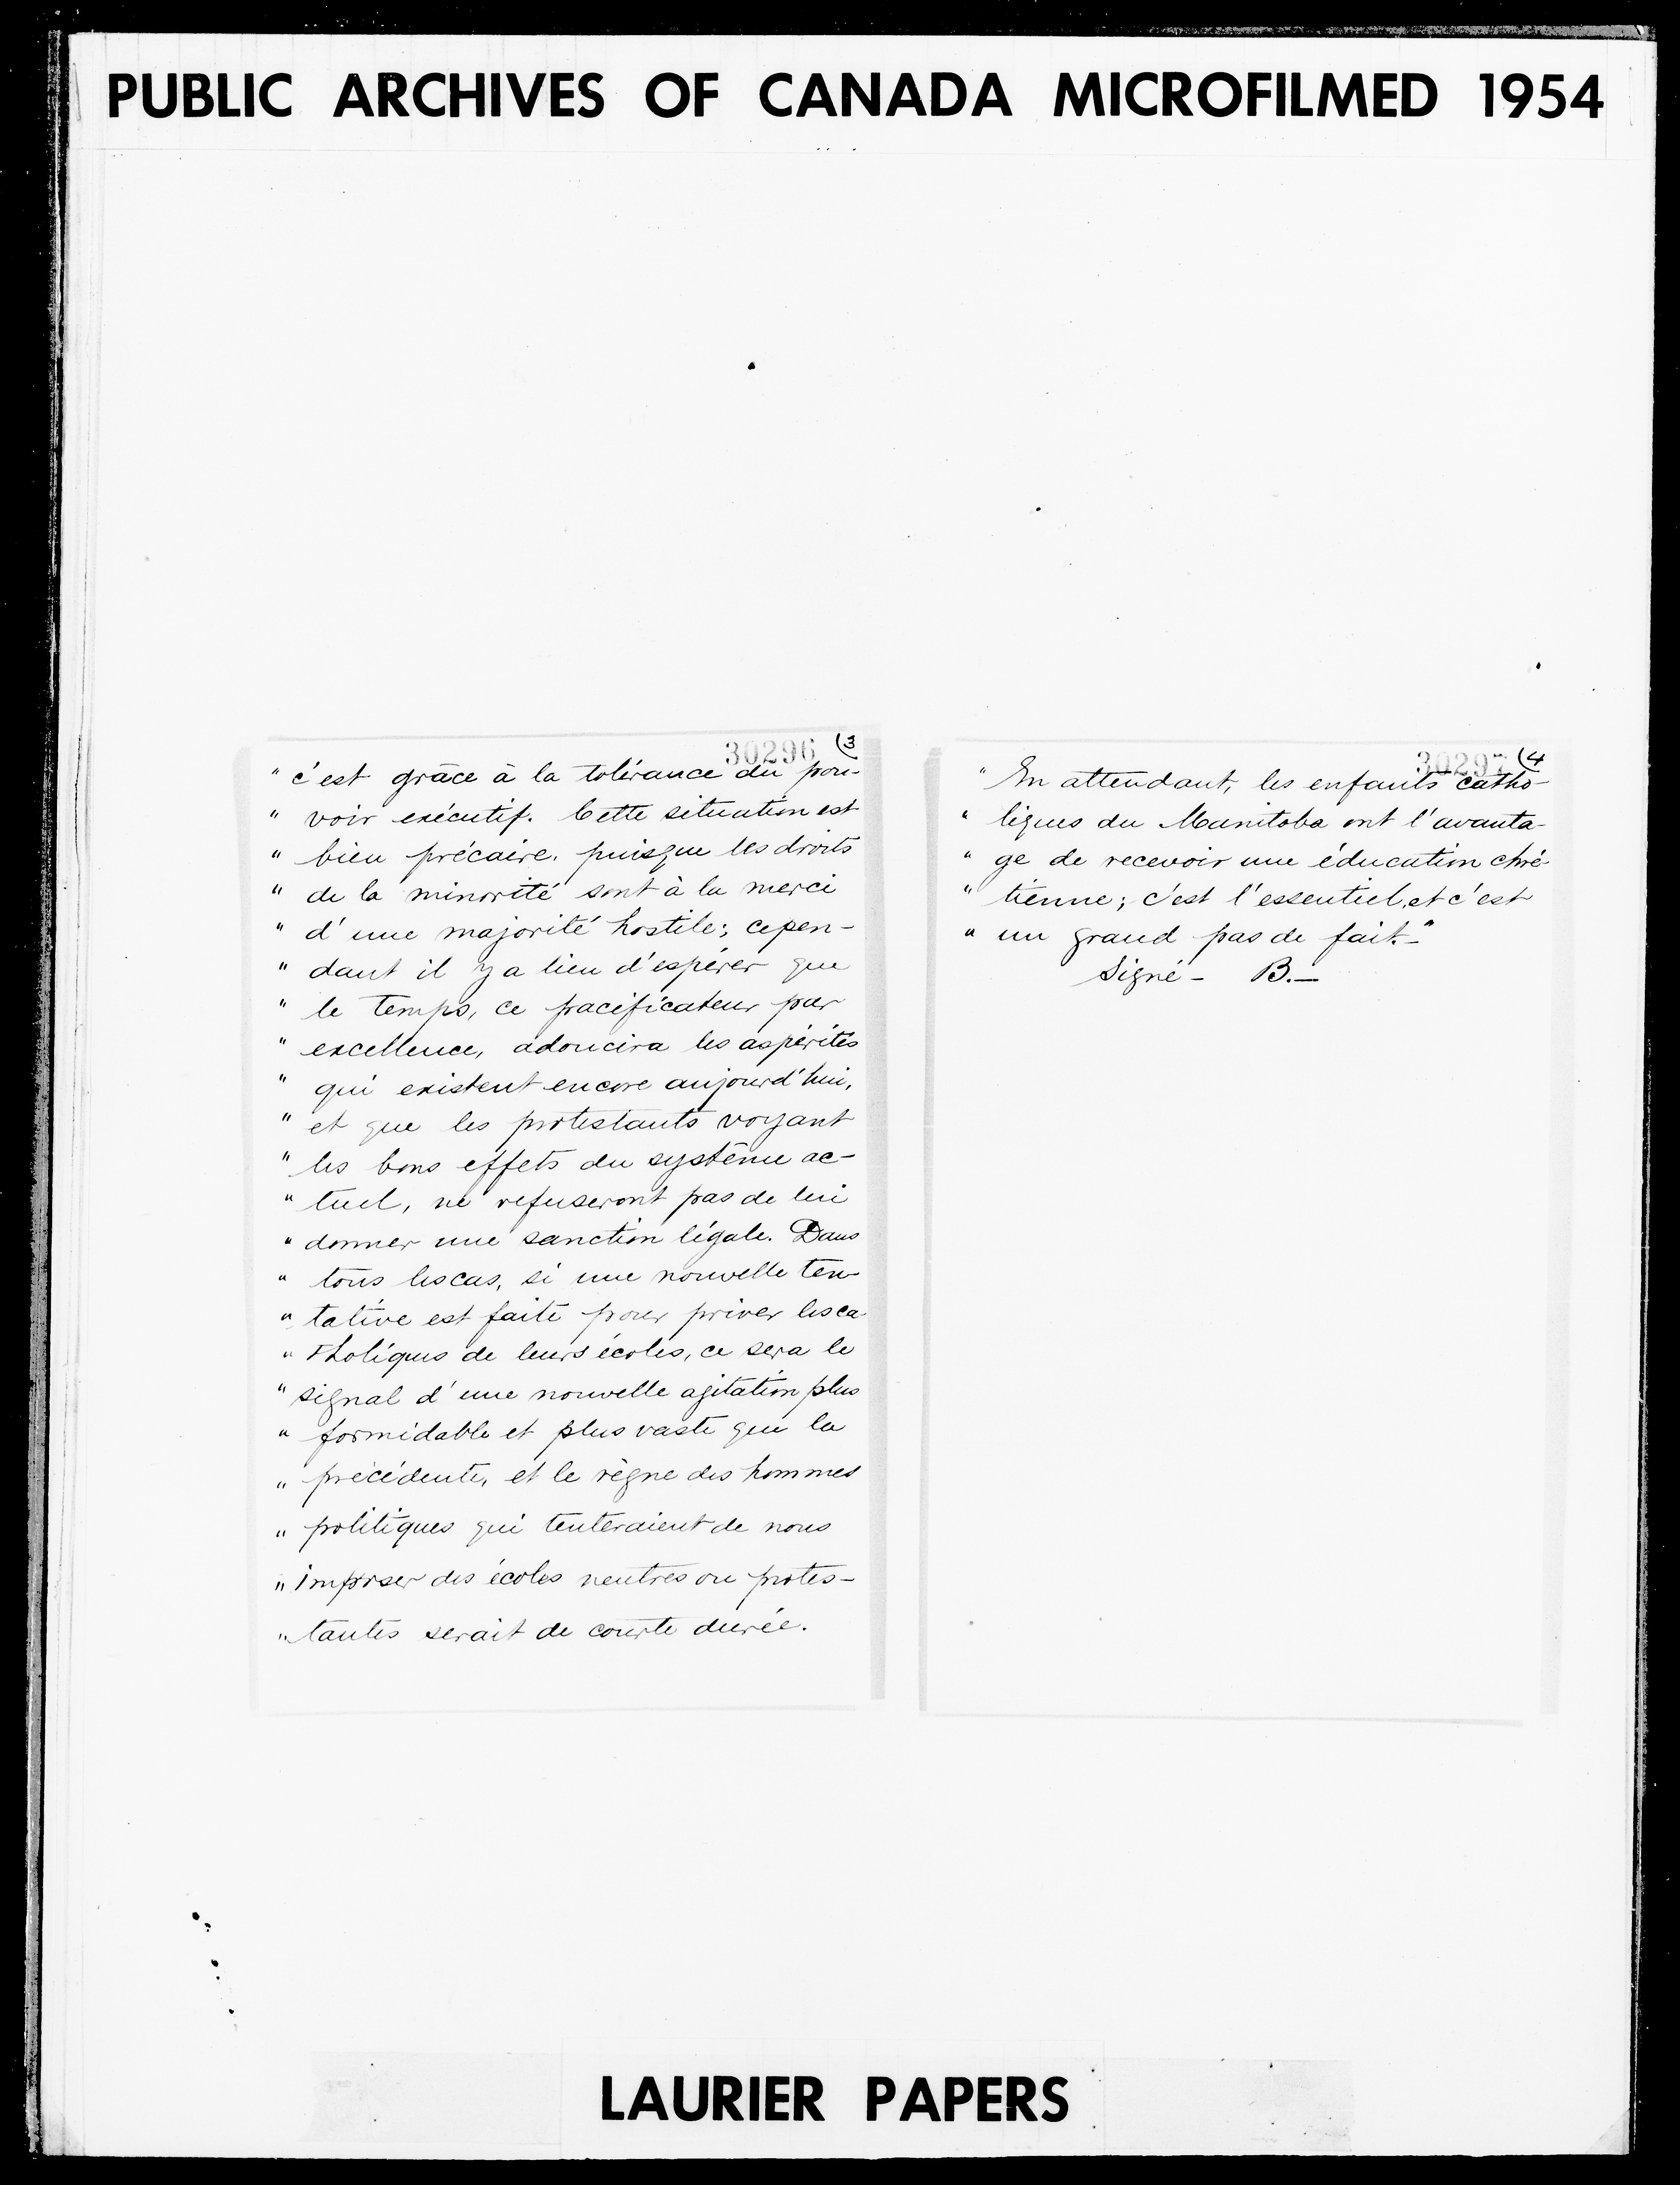 PUBLIC ARCHIVES OF CANADA MICROFILMED 1954
30296 (3
" c'est grâce à la tolérance du pou-
" voir exécutif. Cette situation est
" bien précaire, puisque les droits
" de la minorité sont à la merci
" d'une majorité hostile; cepen-
" dant il y a lieu d'espérer que
" le temps, ce pacificateur par
" excellence, adoucira les aspérités
" qui existent encore aujourd'hui,
" et que les protestants voyant
" les bons effets du système ac-
" tuel, ne refuseront pas de lui
" donner une sanction légale. Dans
" tous les cas, si une nouvelle ten-
" tative est faite pour priver les ca-
" tholiques de leurs écoles, ce sera le
" signal d'une nouvelle agitation plus
" formidable et plus vaste que la
" précédente, et le règne des hommes
" politiques qui tenteraient de nous
" imposer des écoles neutres ou protes-
" tantes serait de courte durée.
30297 (4
" En attendant, les enfants catho-
" liques du Manitoba ont l'avanta-
" ge de recevoir une éducation chré-
" tienne; c'est l'essentiel, et c'est
" un grand pas de fait.-"
Signé - B.-
LAURIER PAPERS